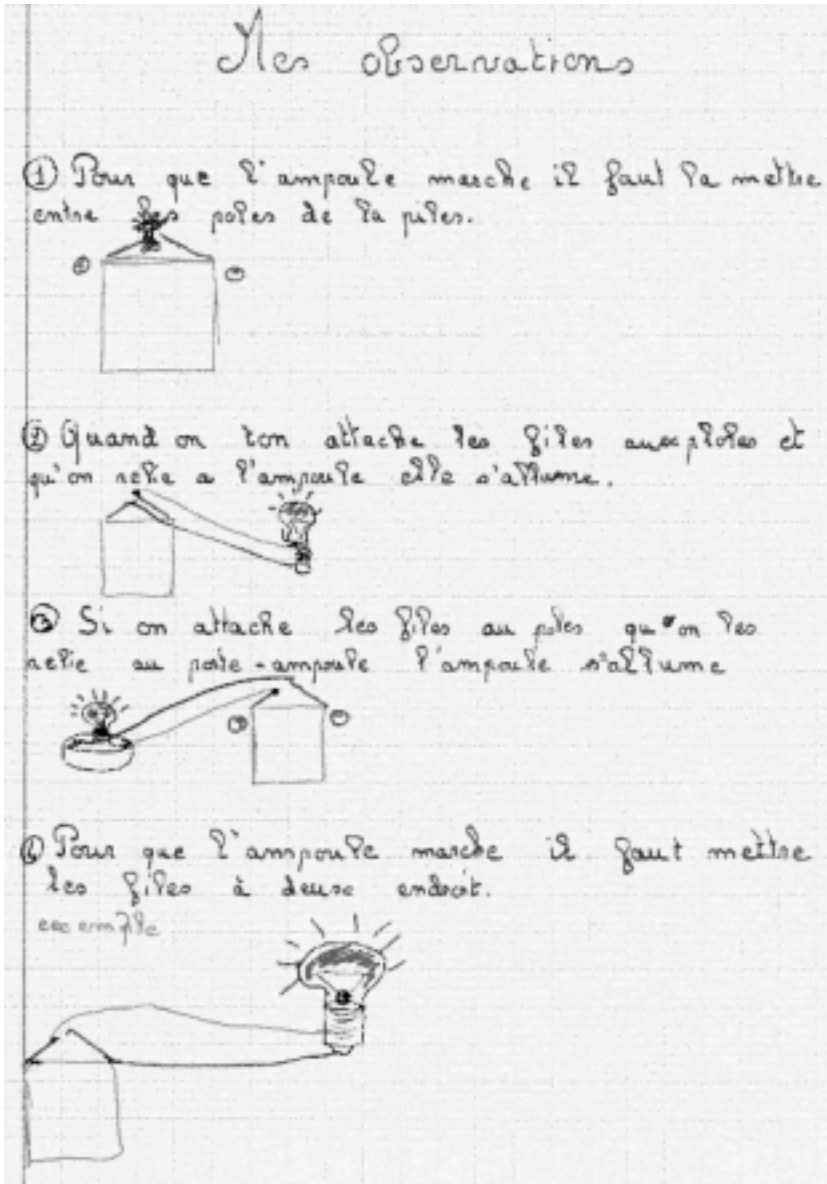 Mes observations
① Pour que l'ampoule marche il faut la mettre
entre les poles de la piles.
② Quand on ton attache les files aux ploles et
qu'on relie a l'ampoule elle s'allume.
③ Si on attache les files au poles qu'on les
relie au poste-ampoule l'ampoule s'allume
Pour que l'ampoule marche il faut mettre
les files à deuse endroit.